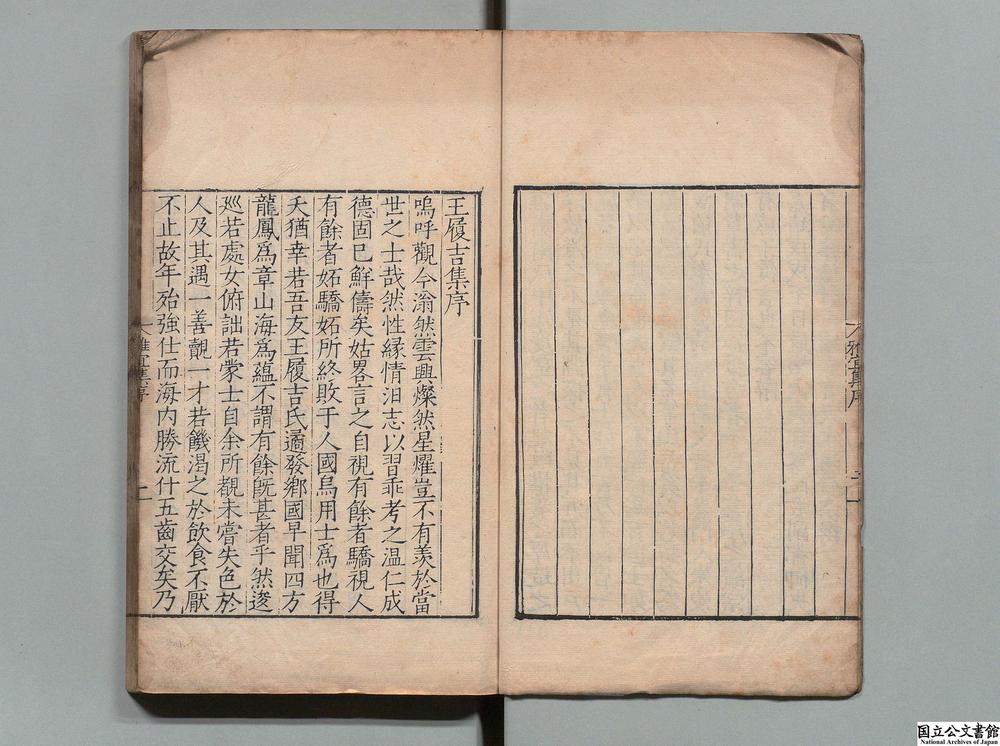 雅宜集序
王履吉集序
嗚呼觀今滃然雲興燦然星燿豈不有羨於當
世之士哉然性緣情汩志以習乖考之温仁成
德固已鮮儔矣姑畧言之自視有餘者驕視人
有餘者妬驕妬所終敗于人國烏用士爲也得
夭猶幸若吾友王履吉氏邁發鄉國早聞四方
龍鳳爲章山海爲藴不謂有餘旣甚者乎然逡
廵若處女俯詘若蒙士自余所覩未嘗失色於
人及其遇一善覿一才若饑渴之於飲食不厭
不止故年殆強仕而海内勝流什五齒交矣乃
雅宜集序
国立公文書館
National Archives of Japan